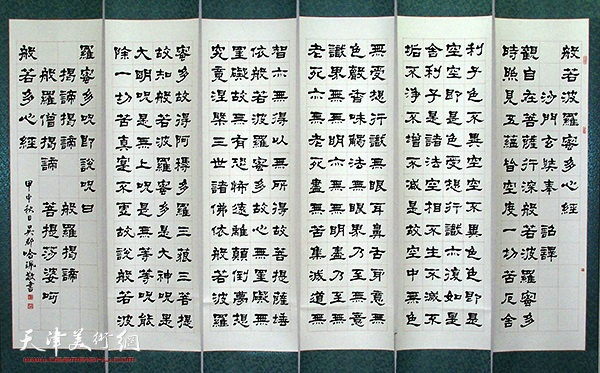 般若波羅蜜多心經
沙門玄奘奉 詔譯
觀自在菩薩行深般若波羅蜜多
時照見五蘊皆空度一切苦厄舍
利子色不異空空不異色色即是
空空即是色受想行識亦復如是
舍利子是諸法空相不生不滅不
垢不淨不增不減是故空中無色
無受想行識無眼耳鼻舌身意無
色聲香味觸法無眼界乃至無意
識界無無明亦無無明盡乃至無
老死亦無老死盡無苦集滅道無
智亦無得以無所得故菩提薩埵
依般若波羅蜜多故心無罣礙無
罣礙故無有恐怖遠離顛倒夢想
究竟涅槃三世諸佛依般若波羅
蜜多故得阿耨多羅三藐三菩提
故知般若波羅蜜多是大神咒是
大明咒是無上咒是無等等咒能
除一切苦真實不虛故說般若波
羅蜜多咒即說咒曰
揭諦揭諦 般羅揭諦
般羅僧揭諦 菩提莎婆呵
般若多心經
甲申秋日吳郡哈珮敬書
天津美術網